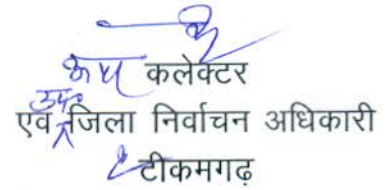 उप कलेक्टर
एवं उप जिला निर्वाचन अधिकारी
टीकमगढ़